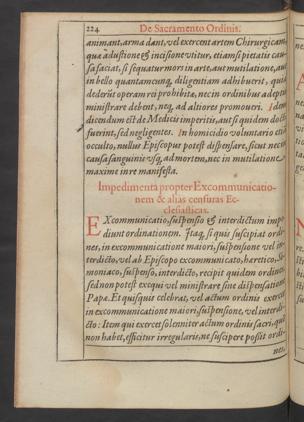 224 De Sacramento Ordinis.
animant, arma dant, vel exercent artem Chirurgicam,
quæ adustione & incisione vtitur, etiam si pietatis cau-
sa faciat, si sequatur mors in arte, aut mutilatione, aut
in bello quantamcunq, diligentiam adhibuerit, quia
dederūt operam rei prohibitæ, nec in ordinibus adeptis
ministrare debent, neq, ad altiores promoueri. Idem
dicendum est de Medicis imperitis, aut si quidem docti
fuerint, sed negligentes. In homicidio voluntario etiā
occulto, nullus Episcopus potest dispensare, sicut nec in
causa sanguinis vsq, ad mortem, nec in mutilatione
maxime in re manifesta.
Impedimenta propter Excommunicatio-
nem & alias censuras Ec-
clesiasticas.
EXcommunicatio, suspensio & interdictum impe-
diunt ordinationem. Itaq, si quis suscipiat ordi-
nes, in excommunicatione maiori, suspensione vel in-
terdicto, vel ab Episcopo excommunicato, hæretico, Si-
moniaco, suspenso, interdicto, recipit quidem ordines,
sed non potest exequi vel ministrare sine dispensatione
Papæ. Et quisquis celebrat, vel actum ordinis exercet
in excommunicatione maiori, suspensione, vel interdi-
cto: Item qui exercet solenniter actum ordinis sacri, quē
non habet, efficitur irregularis, ne suscipere possit ordi-
nes,